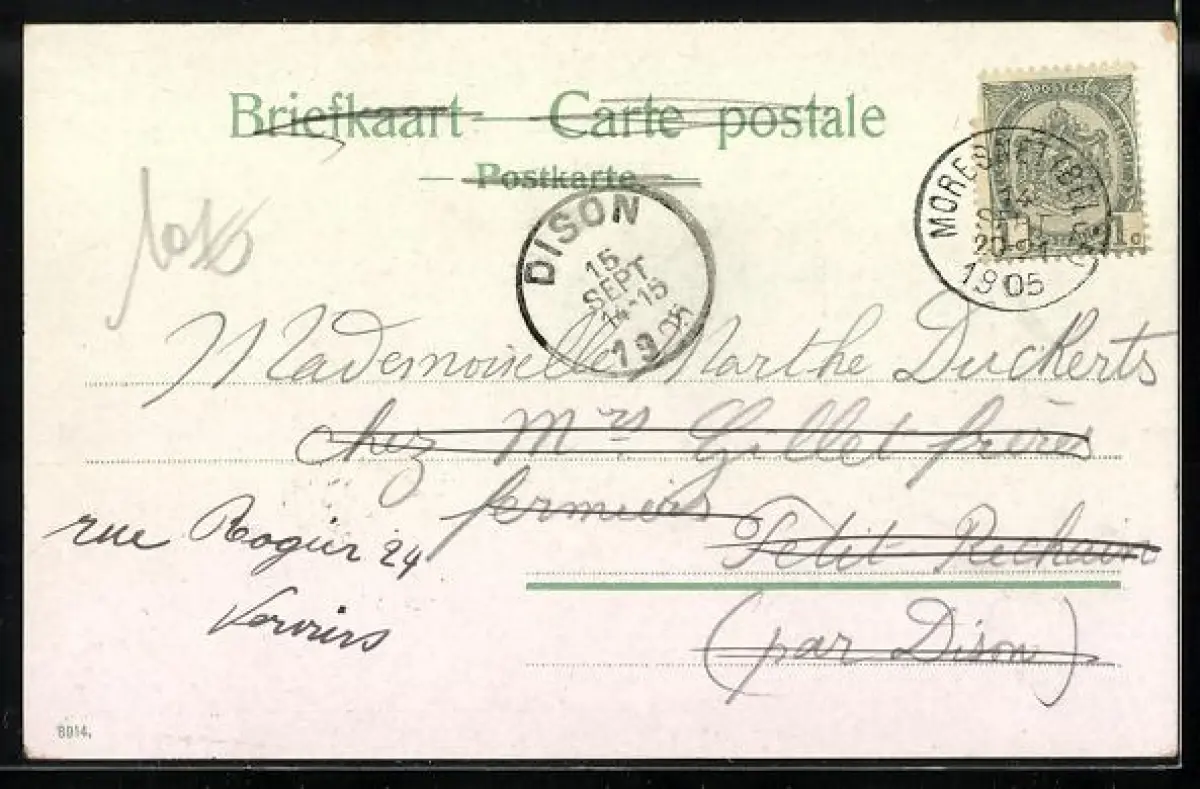 Briefkaart - Carte postale
Postkarte
POSTES
MORESNET (BELG.)
SEPT
1905
1c
DISON
15
SEPT
14-15
1905
Mademoiselle Marthe Duckerts
chez Mrs Gillet frères
fermiers
Petit Rechain
(par Dison)
rue Rogier 24
Verviers
8914.